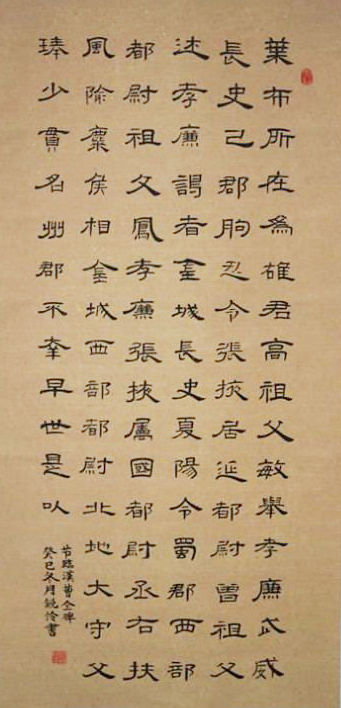 葉布所在為雄君高祖父敏舉孝廉武威
長史巴郡朐忍令張掖居延都尉曾祖父
述孝廉謁者金城長史夏陽令蜀郡西部
都尉祖父鳳孝廉張掖屬國都尉丞右扶
風隃麋侯相金城西部都尉北地大守父
琫少貫名州郡不幸早世是以
節臨漢曹全碑
癸巳冬月書